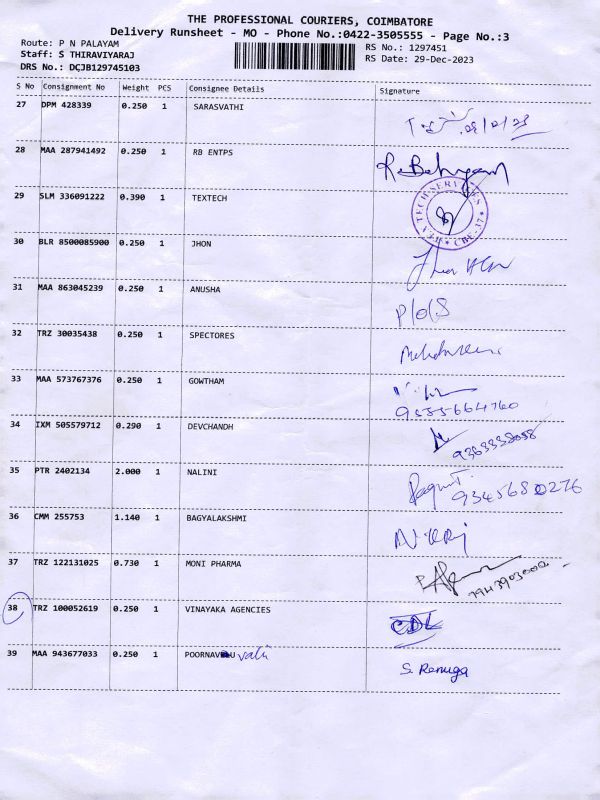 THE PROFESSIONAL COURIERS, COIMBATORE
Delivery Runsheet - MO - Phone No.:0422-3505555 - Page No.:3
Route: P N PALAYAM
Staff: S THIRAVIYARAJ
DRS No.: DCJB129745103
RS No.: 1297451
RS Date: 29-Dec-2023
S No Consignment No Weight PCS Consignee Details Signature
27 DPM 428339 0.250 1 SARASVATHI
28 MAA 287941492 0.250 1 RB ENTPS
29 SLM 336091222 0.390 1 TEXTECH
30 BLR 8500085900 0.250 1 JHON
31 MAA 863045239 0.250 1 ANUSHA P/O/S
32 TRZ 30035438 0.250 1 SPECTORES
33 MAA 573767376 0.250 1 GOWTHAM
34 IXM 505579712 0.290 1 DEVCHANDH
35 PTR 2402134 2.000 1 NALINI
36 CMM 255753 1.140 1 BAGYALAKSHMI
37 TRZ 122131025 0.730 1 MONI PHARMA
38 TRZ 100052619 0.250 1 VINAYAKA AGENCIES
39 MAA 943677033 0.250 1 POORNAV valli S. Renuga